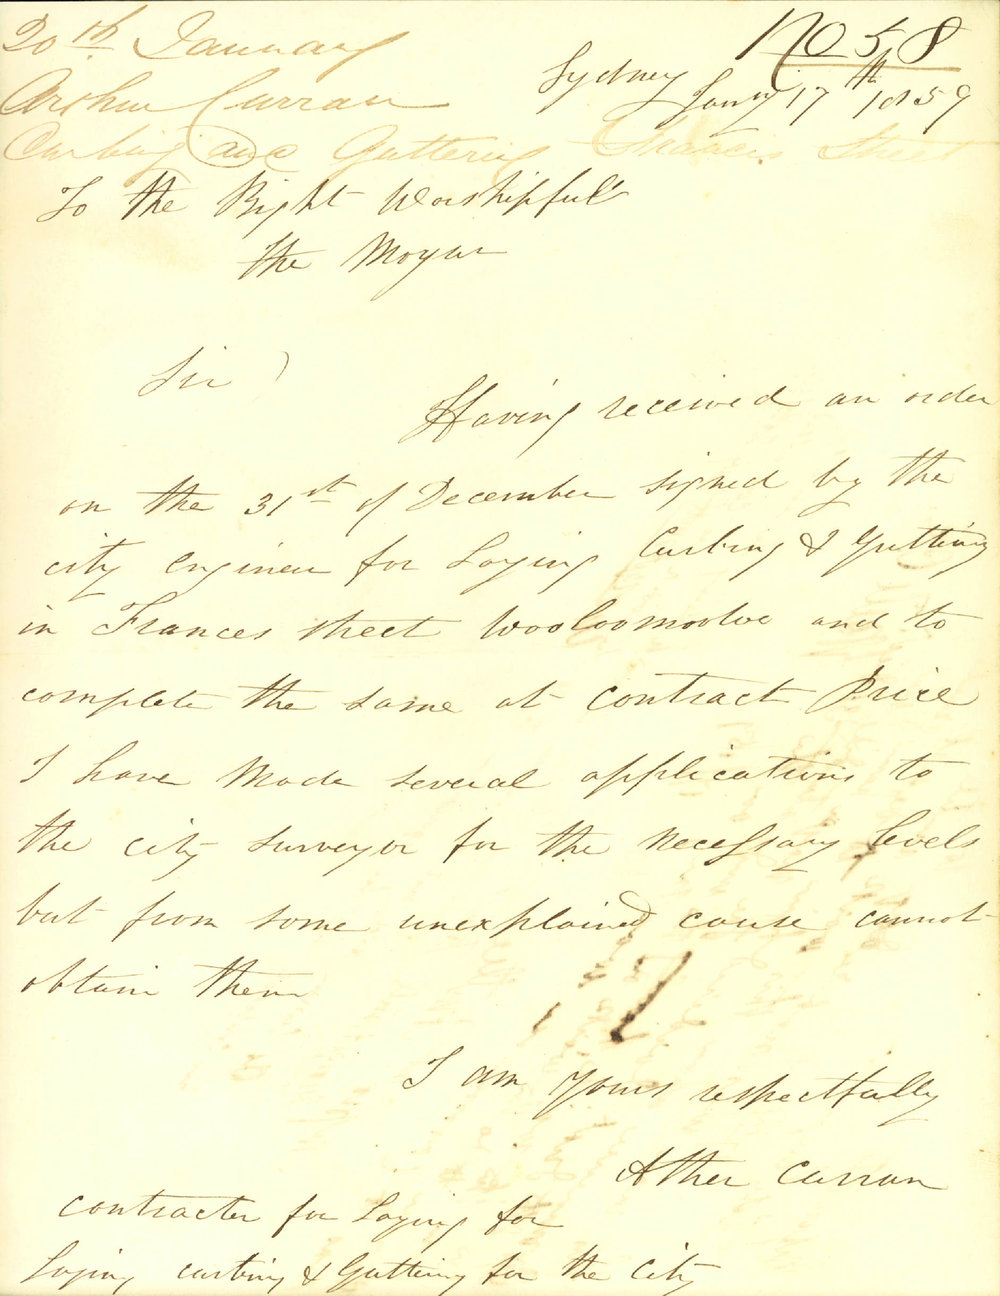 20th January
Arthur Curran
Curbing and Guttering Frances Street
No 58
Sydney Jany 17th 1859
To the Right Worshipfull
the Moyar
Sir
Having received an order
on the 31st of December signed by the
city Engineer for Laying Curbing & Gutting
in Frances street Wooloomooloo and to
complete the same at contract Price
I have Made several applications to
the city surveyor for the necessary levels
but from some unexplained cause cannot
obtain them
I am yours respectfully
Ather Curran
contracter for Laying for
Laying curbing & Gutting for the City